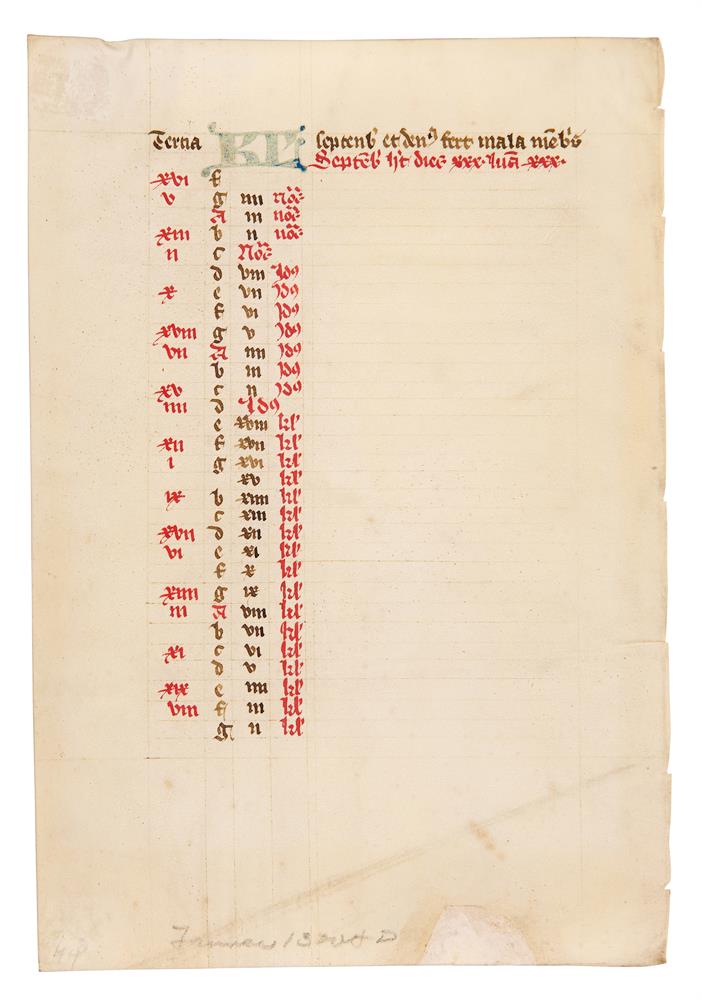 Tertia KL Septenb et den⁹ fert mala mēbis
Septēb h't dies xxx. luā xxx.
xvi f
v g iiii noͣs
A iii noͣs
xiii b ii noͣs
ii c Noͣs
d viii Id⁹
x e vii Id⁹
f vi Id⁹
xviii g v Id⁹
vii A iiii Id⁹
b iii Id⁹
xv c ii Id⁹
iiii d Id⁹
e xviii kl'
xii f xvii kl'
i g xvi kl'
xv kl'
ix b xiiii kl'
c xiii kl'
xvii d xii kl'
vi e xi kl'
f x kl'
xiiii g ix kl'
iii A viii kl'
b vii kl'
xi c vi kl'
d v kl'
xix e iiii kl'
viii f iii kl'
g ii kl'